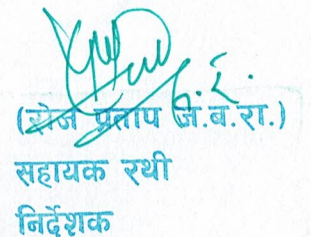 प्रताप ज.ब.रा.)
सहायक रथी
निर्देशक